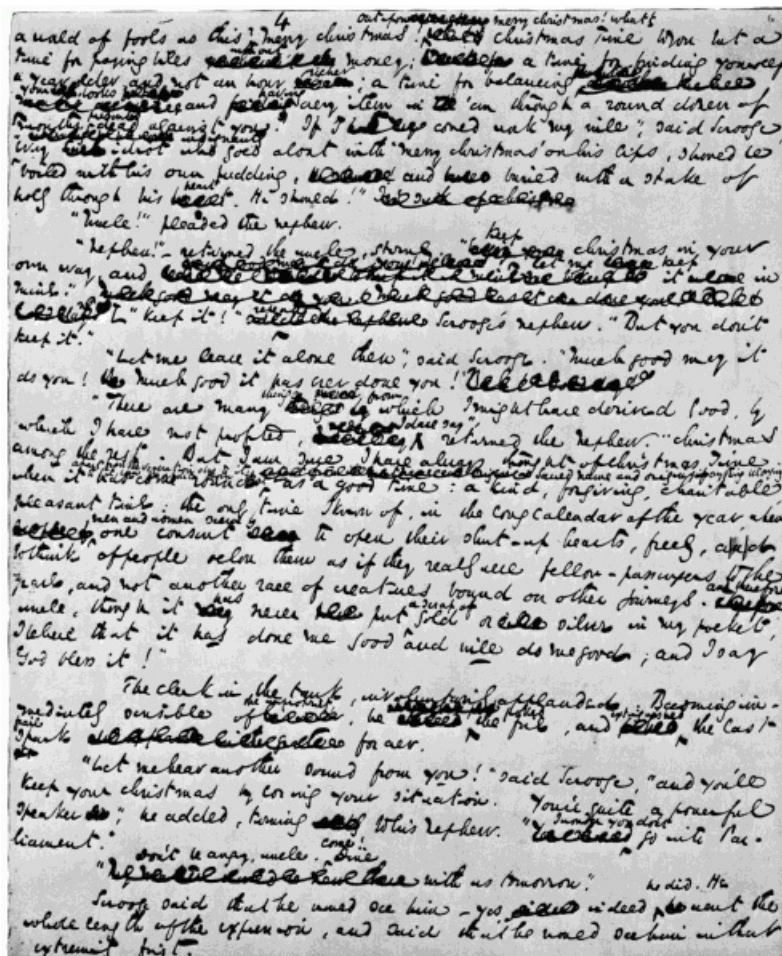 4
out upon merry christmas! what's
a world of fools as this? merry christmas! christmas time to you but a
time for paying bills without money; a time for finding yourself
a year older and not an hour richer; a time for balancing your books
and having every item in 'em through a round dozen of
months presented dead against you? If I could work my will", said Scrooge
"every idiot who goes about with 'merry christmas' on his lips, should be
boiled with his own pudding, and buried with a stake of
holly through his heart. He should!"
"Uncle!" pleaded the nephew.
"Nephew!" returned the uncle, sternly, "keep christmas in your
own way, and let me keep it in
mine."
"Keep it!" repeated Scrooge's nephew. "But you don't
keep it."
"Let me leave it alone then", said Scrooge. "Much good may it
do you! Much good it has ever done you!"
"There are many things from which I might have derived good, by
which I have not profited, I dare say", returned the nephew. "christmas
among the rest. But I am sure I have always thought of christmas time
when it has come round as a good time: a kind, forgiving, charitable
pleasant time: the only time I know of, in the long calendar of the year, when
men and women seem by one consent to open their shut-up hearts, freely, and
to think of people below them as if they really were fellow-passengers to the
grave, and not another race of creatures bound on other journeys. and therefore
uncle, though it has never put a scrap of gold or silver in my pocket
I believe that it has done me good and will do me good; and I say
God bless it!"
The clerk in the tank, involuntarily applauded. Becoming im-
mediately sensible of the impropriety, he poked the fire, and extinguished the last
frail spark for ever.
"Let me hear another sound from you!" said Scrooge, "and you'll
keep your christmas by losing your situation. You're quite a powerful
speaker", he added, turning to his nephew. "I wonder you don't go into Par-
liament."
"Don't be angry, uncle. come! Dine with us tomorrow."
Scrooge said that he would see him – yes, indeed he did. He went the
whole length of the expression, and said that he would see him in that
extremity first.